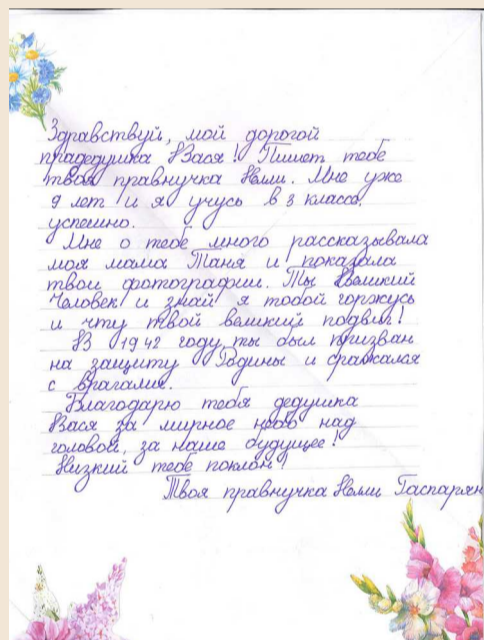 Здравствуй, мой дорогой
прадедушка Вася! Пишет тебе
твоя правнучка Нелли. Мне уже
9 лет и я учусь в 3 классе,
успешно.
Мне о тебе много рассказывала
моя мама Таня и показала
твои фотографии. Ты Великий
Человек и знай я тобой горжусь
и чту твой великий подвиг!
В 1942 году ты был призван
на защиту Родины и сражался
с врагами.
Благодарю тебя дедушка
Вася за мирное небо над
головой, за наше будущее!
Низкий тебе поклон!
Твоя правнучка Нелли Гаспарян